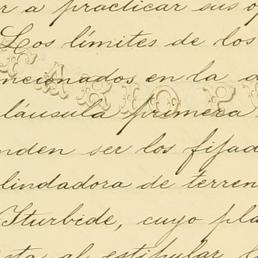 r a practicar sus op
Los límites de los
ncionados en la a
láusula primera
nden ser los fijad
lindadora de terren
Iturbide, cuyo pla
sta al estipular